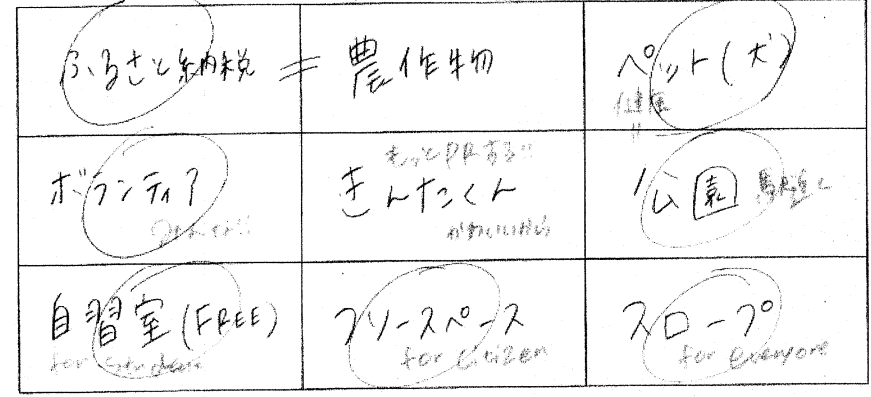 ふるさと納税 = 農作物
ペット(犬)
健康
〃
ボランティア
もっとPRする!!
きんたくん
かわいいから
公園
自習室(FREE)
for students
フリースペース
for citizen
スロープ
for everyone